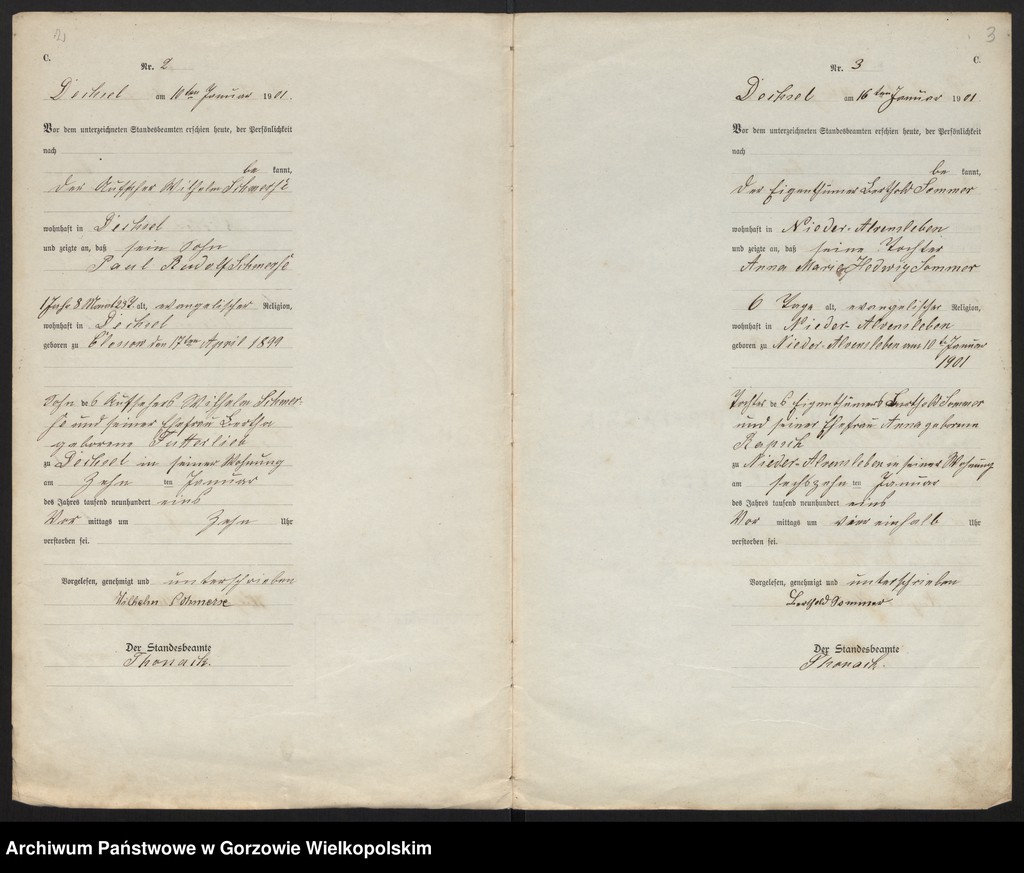 2
C.
Nr. 2
Dechsel am 10ten Januar 1901.
Vor dem unterzeichneten Standesbeamten erschien heute, der Persönlichkeit
nach
be kannt,
der Aufseher Wilhelm Schmerse
wohnhaft in Dechsel
und zeigte an, daß sein Sohn
Paul Rudolf Schmerse
1 Jahr 8 Monat 23 T. alt, evangelischer Religion,
wohnhaft in Dechsel
geboren zu Clossow den 17ten April 1899
Sohn des Aufsehers Wilhelm Schmer-
se und seiner Ehefrau Bertha
geborene Futterlieb
zu Dechsel in seiner Wohnung
am Zehn ten Januar
des Jahres tausend neunhundert eins
Vor mittags um Zehn Uhr
verstorben sei.
Vorgelesen, genehmigt und unterschrieben
Wilhelm Schmerse
Der Standesbeamte
Thonack.
3
C.
Nr. 3
Dechsel am 16ten Januar 1901
Vor dem unterzeichneten Standesbeamten erschien heute, der Persönlichkeit
nach
be kannt,
der Eigenthümer Berthold Sommer
wohnhaft in Nieder-Alvensleben
und zeigte an, daß seine Tochter
Anna Marie Hedwig Sommer
6 Tage alt, evangelischer Religion,
wohnhaft in Nieder-Alvensleben
geboren zu Nieder-Alvensleben am 10ten Januar
1901
Tochter des Eigenthümers Berthold Sommer
und seiner Ehefrau Anna geborene
zu Nieder-Alvensleben in seiner Wohnung
am sechszehn ten Januar
des Jahres tausend neunhundert eins
Vor mittags um vier einhalb Uhr
verstorben sei.
Vorgelesen, genehmigt und unterschrieben
Berthold Sommer
Der Standesbeamte
Thonack.
Archiwum Państwowe w Gorzowie Wielkopolskim